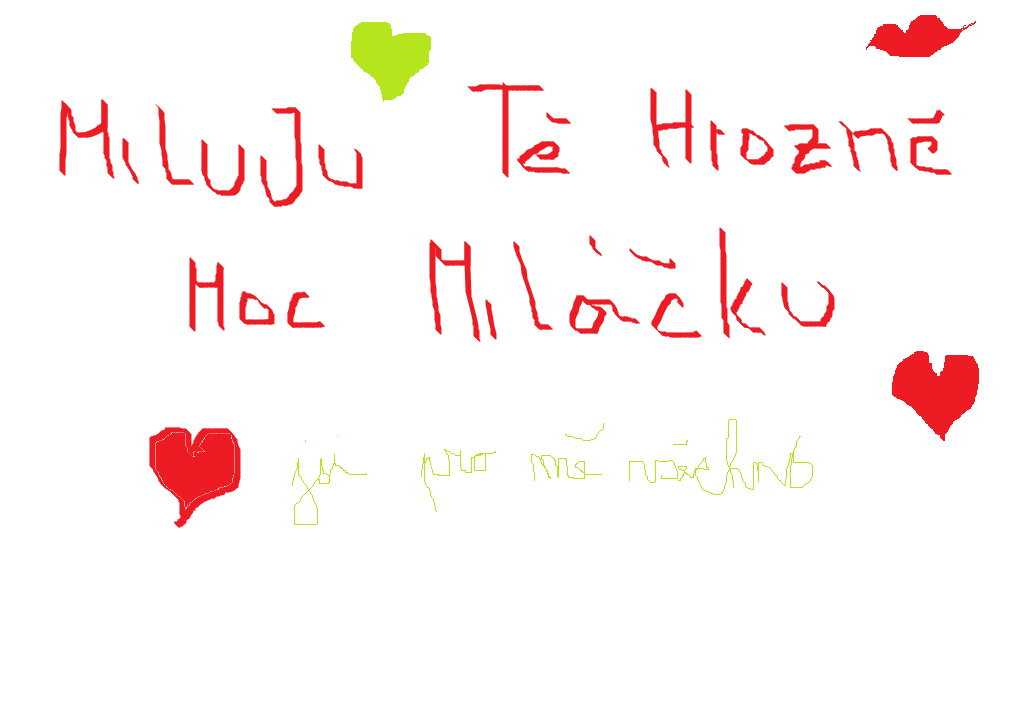 MiLuJu Tě Hrozně
Hoc Miláčku
jsi pro mě všechno